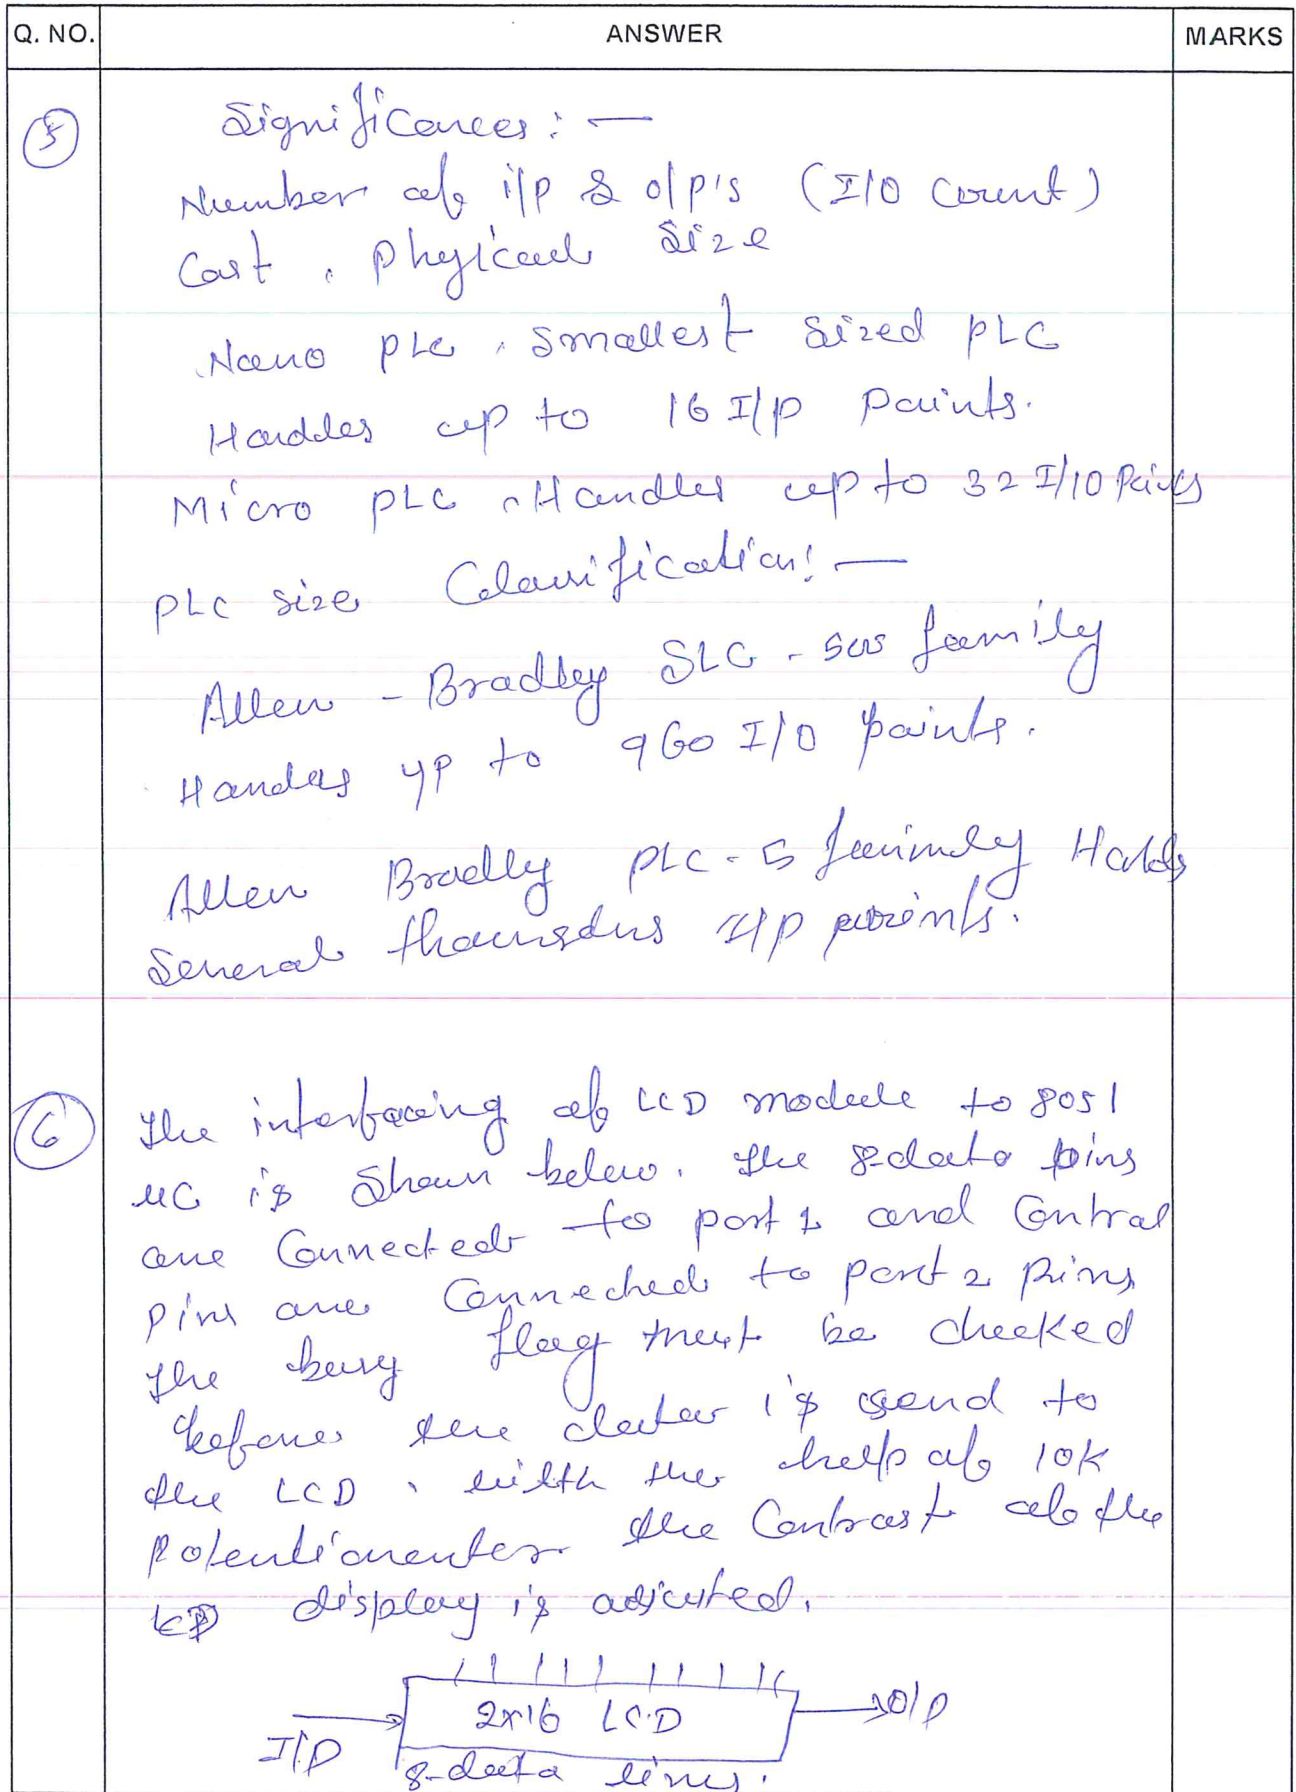 Q. NO. ANSWER MARKS
5 Significances : —
Number of i/p & o/p's (I/O Count)
Cost , Physical Size
Nano PLC , Smallest Sized PLC
Handles up to 16 I/p Points.
Micro PLC , Handles up to 32 I/10 Points
PLC size Classification! —
Allen - Bradley SLC - 500 family
Handles up to 960 I/0 points.
Allen Bradlly PLC - 5 family Holds
Several thousdns I/p points.
6 The interfacing of LCD module to 8051
uC is Shown below. The 8-data pins
are Connected to port 1 and Control
Pins are Connected to port 2 Pins,
The busy flag must be checked
before the data is send to
the LCD , with the help of 10K
Potentiometer the Contrast of the
display is adjusted.
2x16 LCD
I/P
O/P
8-data lines.